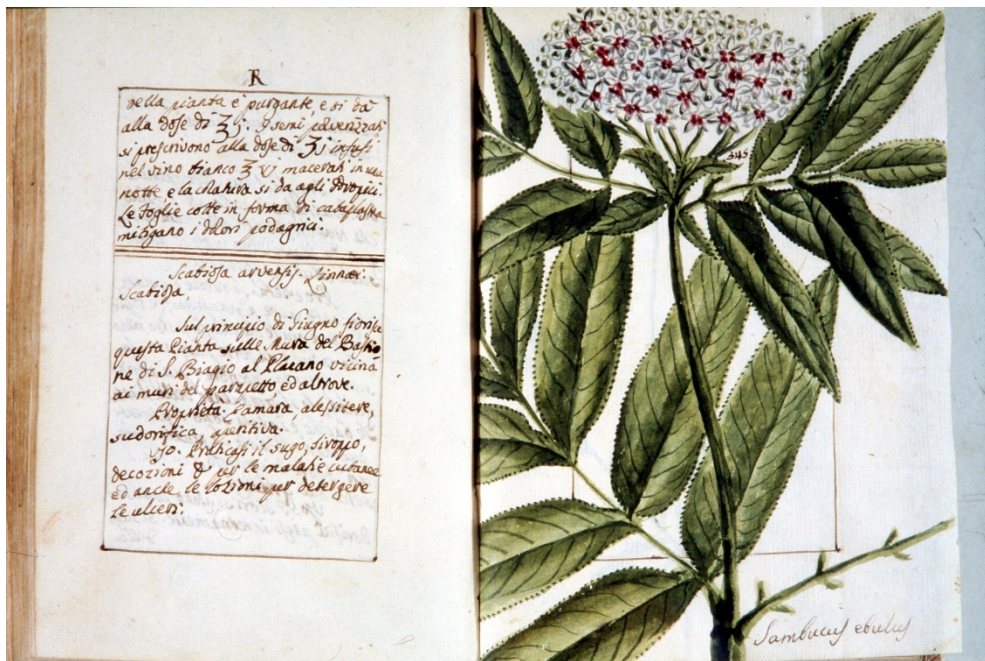 R
nella pianta è purgante, e si dà
alla dose di ʒ. I semi polverizzati
si prescrivono alla dose di ʒj infusi
nel vino bianco ʒ v macerati in una
notte, e la colatura si da agli idropici.
Le foglie cotte in forma di cataplasma
mitigano i dolori podagrici.
Scabiosa arvensis. Linnaei.
Scabiosa.
Sul principio di Giugno fiorisce
questa Pianta sulle Mura del Bastio
ne di S. Biagio al Placano vicina
ai muri del parzietto ed altrove.
Proprietà. amara, alessitere,
sudorifica, aperitiva.
Uso. Praticasi il sugo, siroppo,
decozioni & per le malatie cutanee
ed anche le lozioni per detergere
le ulceri.
345
Sambucus ebulus